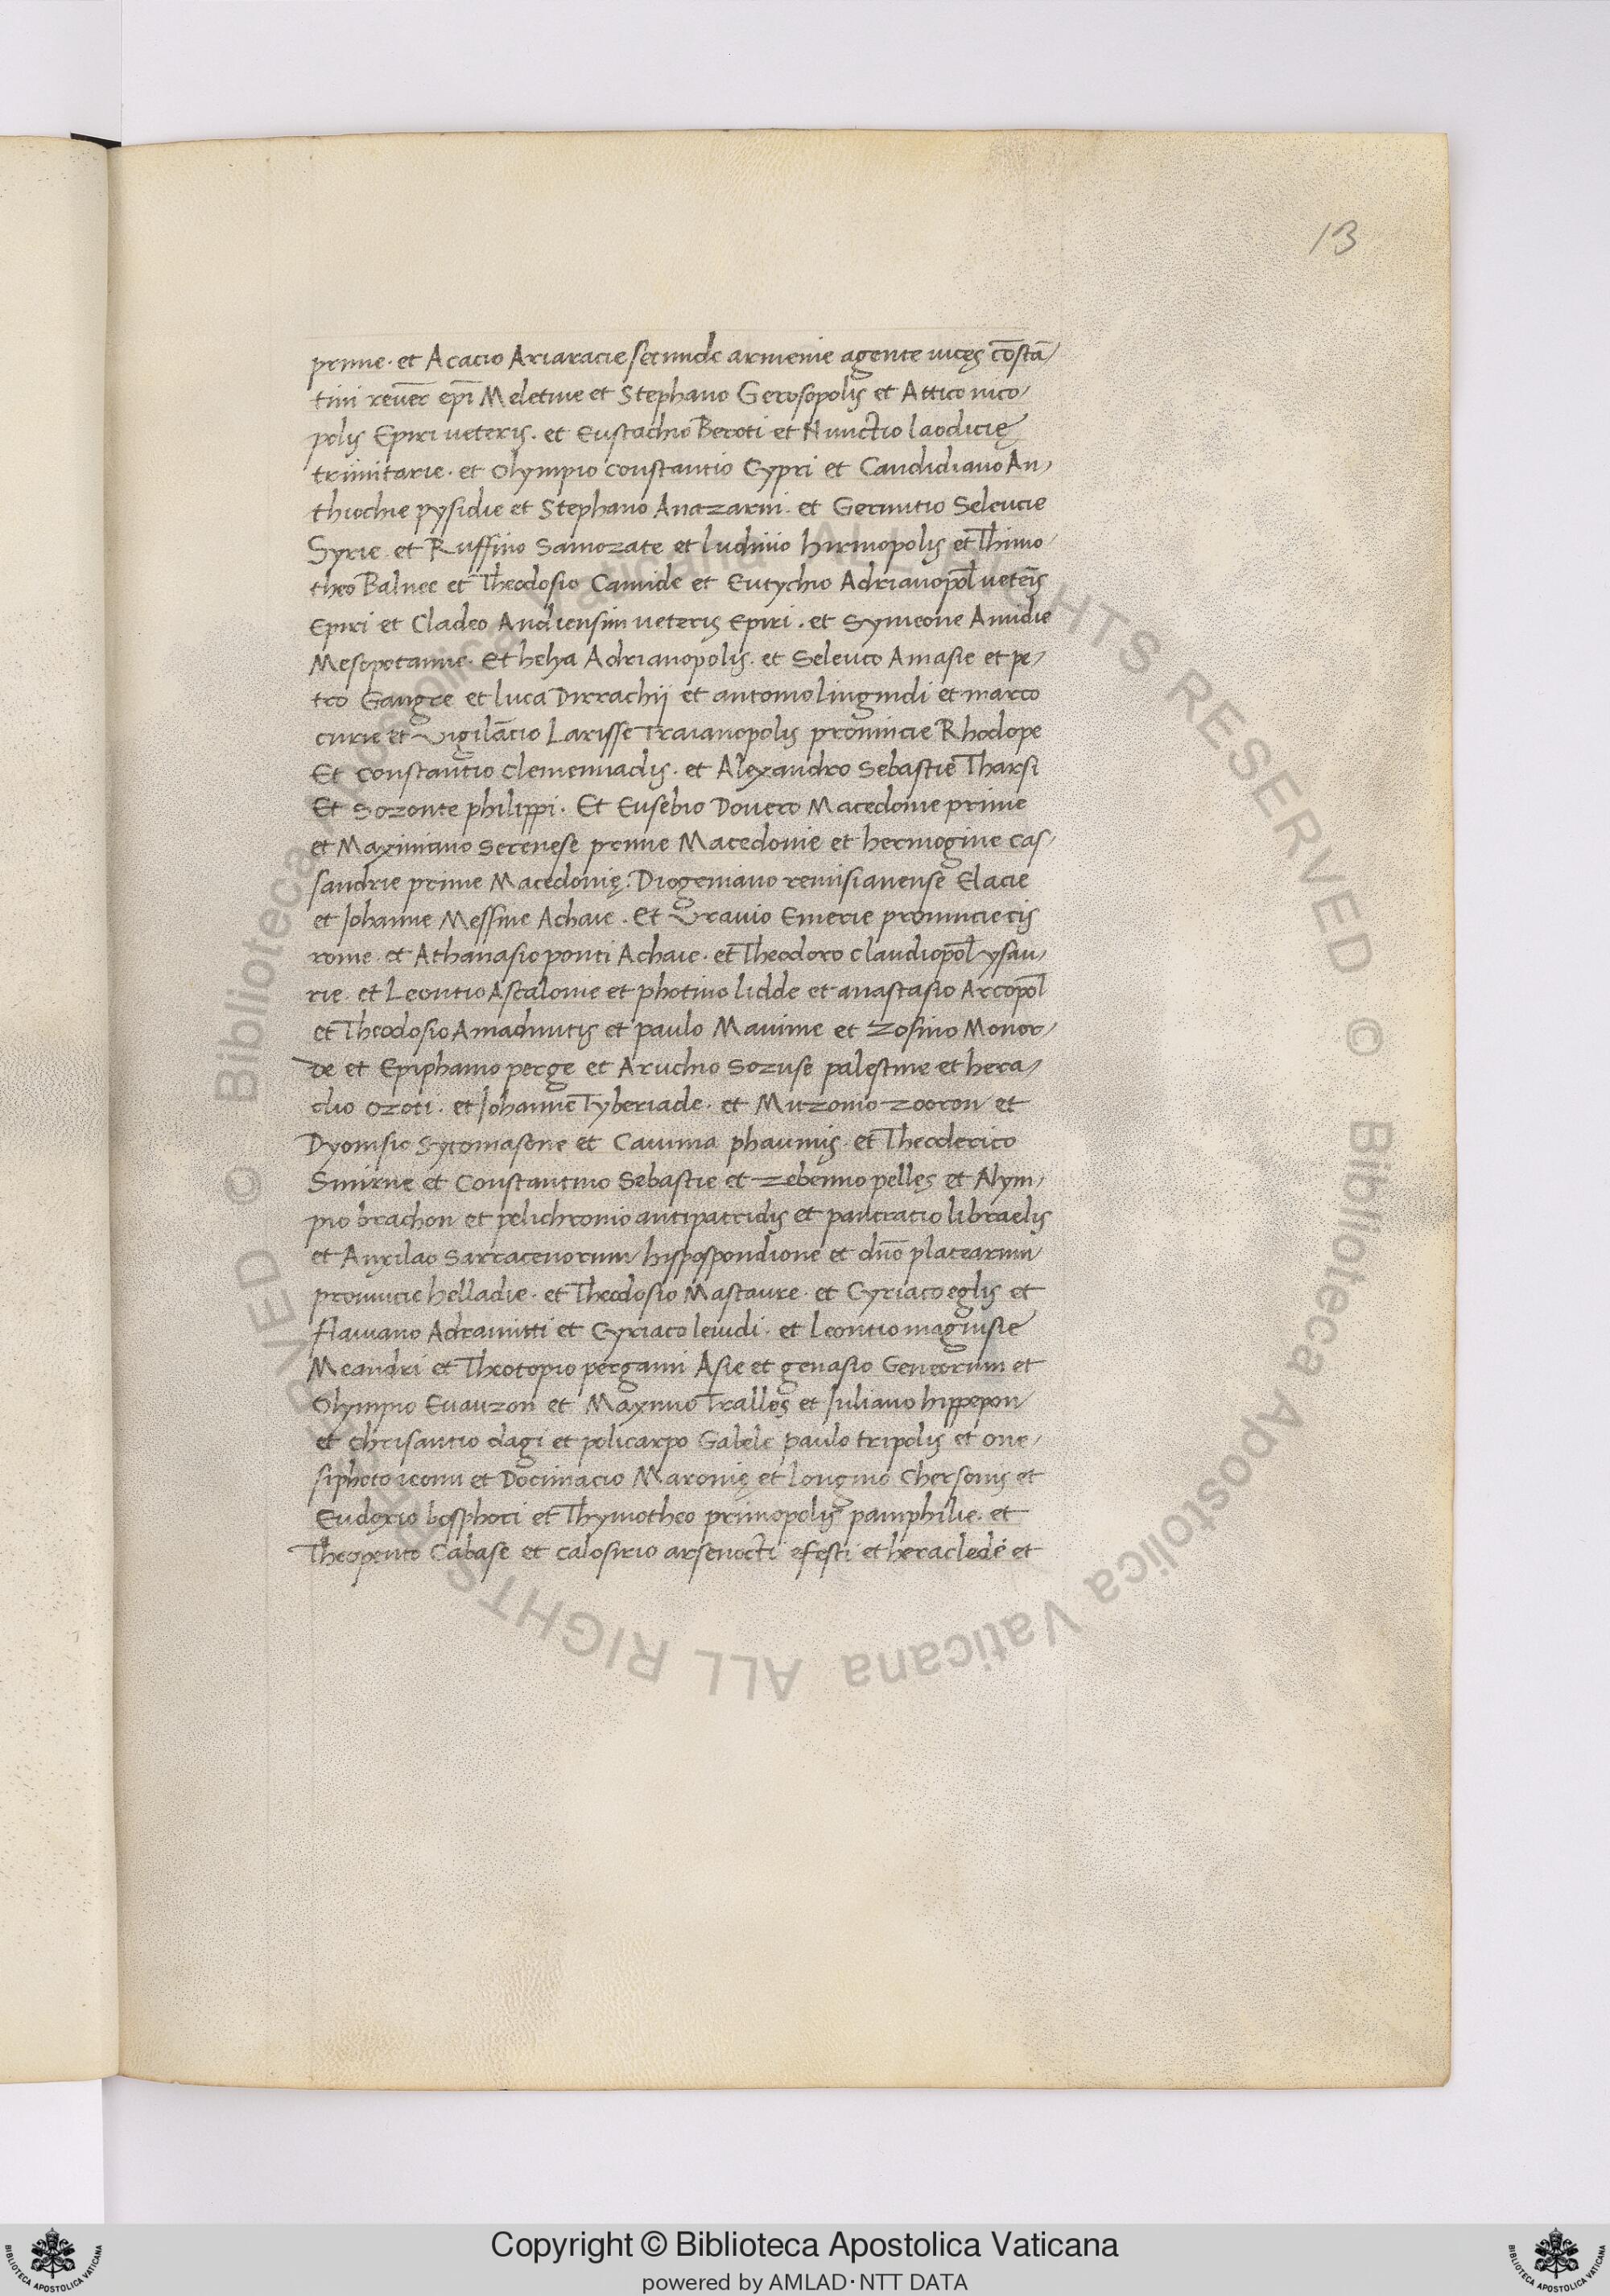 13
prime. et Acacio Ariaracie secunde armenie agente uicęs cōstā
tini reuer̄c ep̄i Meletine et Stephano Gerosopolis et Attico nico
polis Epiri ueteris. et Eustachio Beroti et Nunctio laodicię
trimitarie. et Olympio constantio Cypri et Candidiano An
thiochie pysidie et Stephano Anazarni. et Geruntio Seleucie
Syrie et Ruffino Samozate et Iudinio hirmopolis et Thimo
theo Balnee et Theodosio Camide et Eutychio Adrianopol̄ ueteris
Epiri et Cladeo Andiensim ueteris Epiri. et Symeone Amidie
Mesopotamie. Et helya Adrianopolis. et Seleuco Amasie et pe
tro Gangre et luca Dirrachij et antonio lingnidi et marco
curie et Vigilātio Larisse Traianopolis prouincie Rhodope
Et constantio clemenuadis. et Alexandro Sebastie Tharsi
Et Sozonte philippi. Et Eusebio Douero Macedonie prime
et Maximiano serenese prime Macedonie et hermogine cas
sandrie prime Macedonię. Diogeniano remisianense Elacie
et Johanne Messine Achaie. Et Vranio Emerie prouincie cis
rome. et Athanasio ponti Achaie. et Theodoro claudiopol̄ ysau
rie. et Leontio Ascalonie et photino lidde et anastasio Arcopol̄
et Theodosio Amadnutis et paulo Manime et Zosimo Monor
de et Epiphanio perge et Aruchio Sozuse palestine et hera
clio ozoti. et Johanne Tyberiade. et Muzonio zooron et
Dyonisio Syromasone et Cauma phaunis. et Theoderico
Smirne et Constantino Sebastie et Zebenno pelles et Alym
pio brachon et polichronio antipatridis et pancratio libraelis
et Auxilao Sarracenorum hispospondione et dn̄o platearum
prouincie helladie. et Theodosio Mastaure. et Cyriaco eglis et
flauiano Adramitti et Cyriaco leuidi. et leontio magnisie
Meandri et Theotopio pergami Asie et genasio Geneorum et
Olympio Euauzon et Maximo Tralles et Juliano hippepon
et chrisantio dagi et policarpo Gabele paulo tripolis et one
siphoto iconu et Docimacio Maronię et longino chersonis et
Eudoxio bosphori et Thymotheo primopolis pamphilie. et
Theopento Cabase et calosirio arsenocti efesti et heraclede et
© Biblioteca Apostolica Vaticana ALL RIGHTS RESERVED © Biblioteca Apostolica Vaticana ALL RIGHTS RESERVED
Copyright © Biblioteca Apostolica Vaticana
powered by AMLAD·NTT DATA
BIBLIOTECA APOSTOLICA VATICANA
BIBLIOTECA APOSTOLICA VATICANA